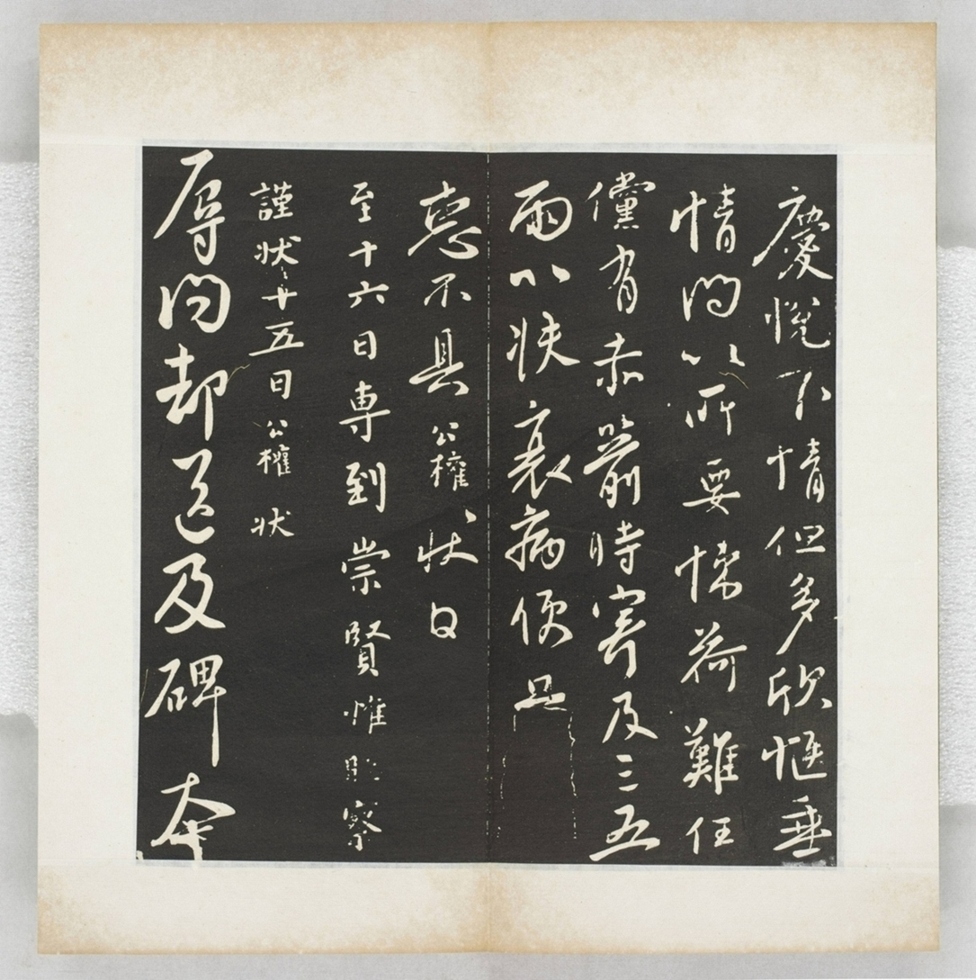 慶悅下情但多欣愜垂
情問以所要悚荷難任
儻有赤箭時寄及三五
兩以扶衰病便是
惠不具公權狀白
至十六日專到崇賢惟照察
謹狀〻廿五日公權狀
辱問却送及碑本